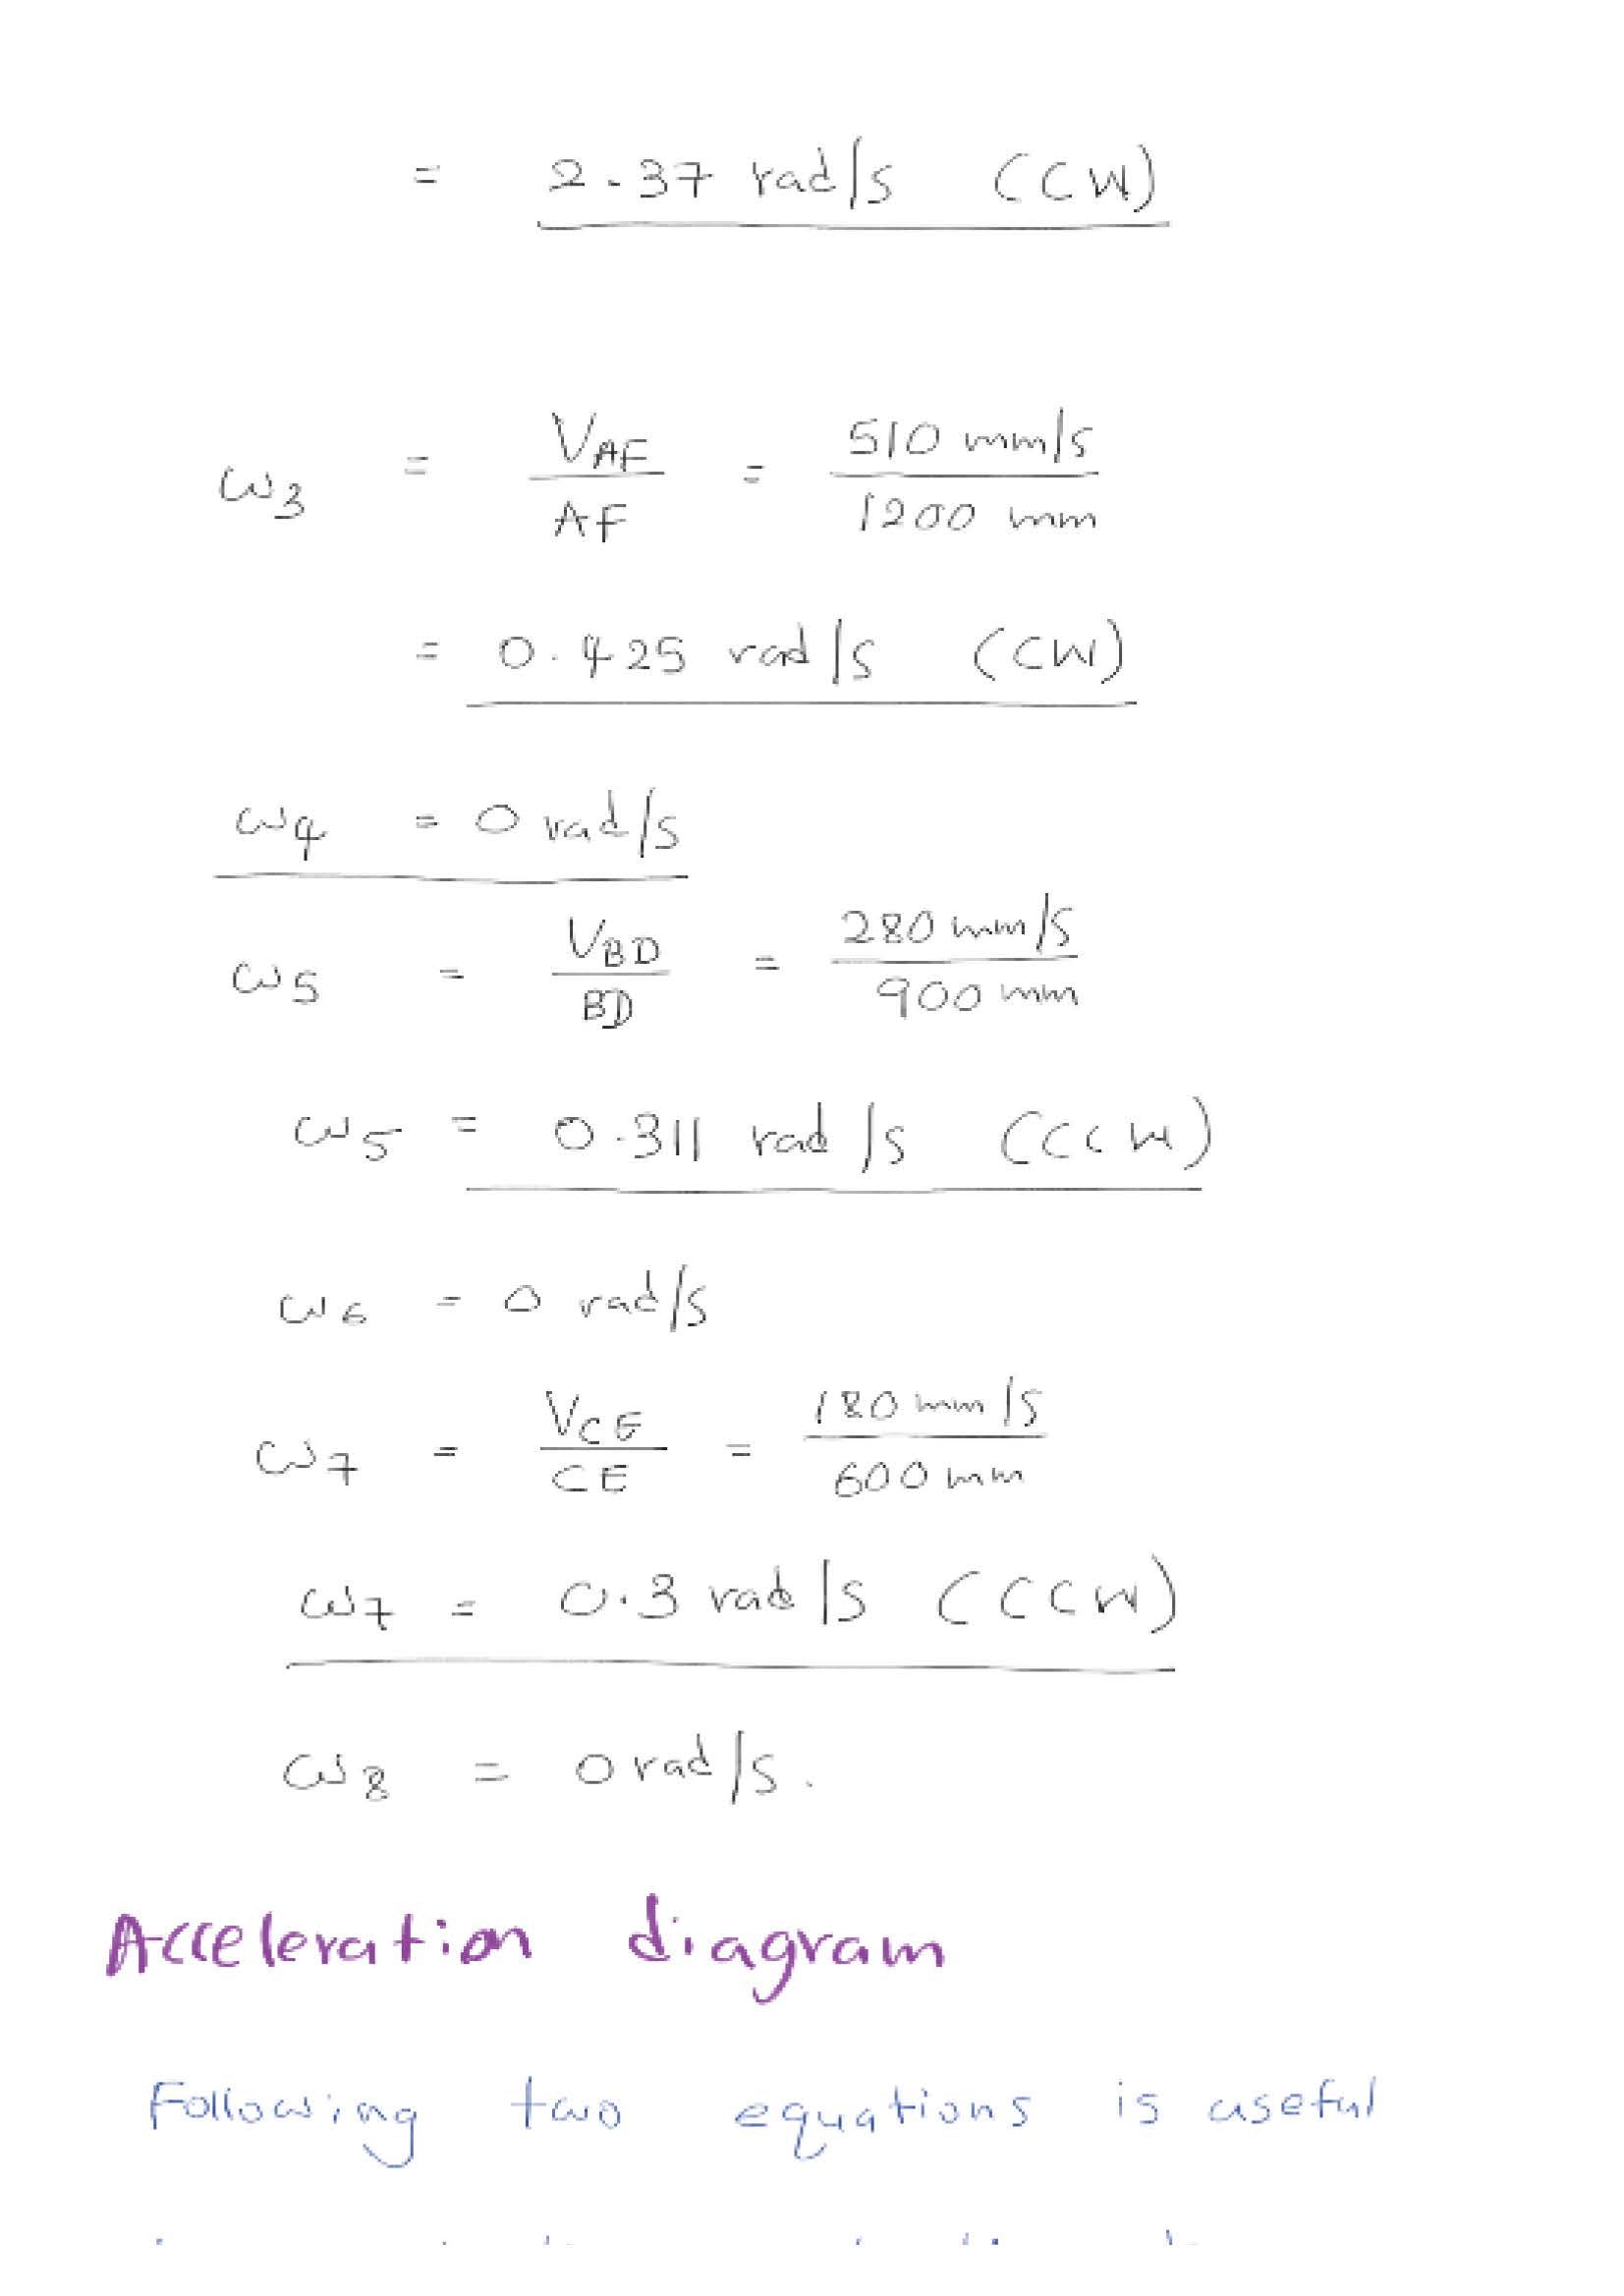 = 2.37 rad/s (CW)
ω3 = VAF / AF = 510 mm/s / 1200 mm
= 0.425 rad/s (CW)
ω4 = 0 rad/s
ω5 = VBD / BD = 280 mm/s / 900 mm
ω5 = 0.311 rad/s (CCW)
ω6 = 0 rad/s
ω7 = VCE / CE = 180 mm/s / 600 mm
ω7 = 0.3 rad/s (CCW)
ω8 = 0 rad/s.
Acceleration diagram
Following two equations is useful